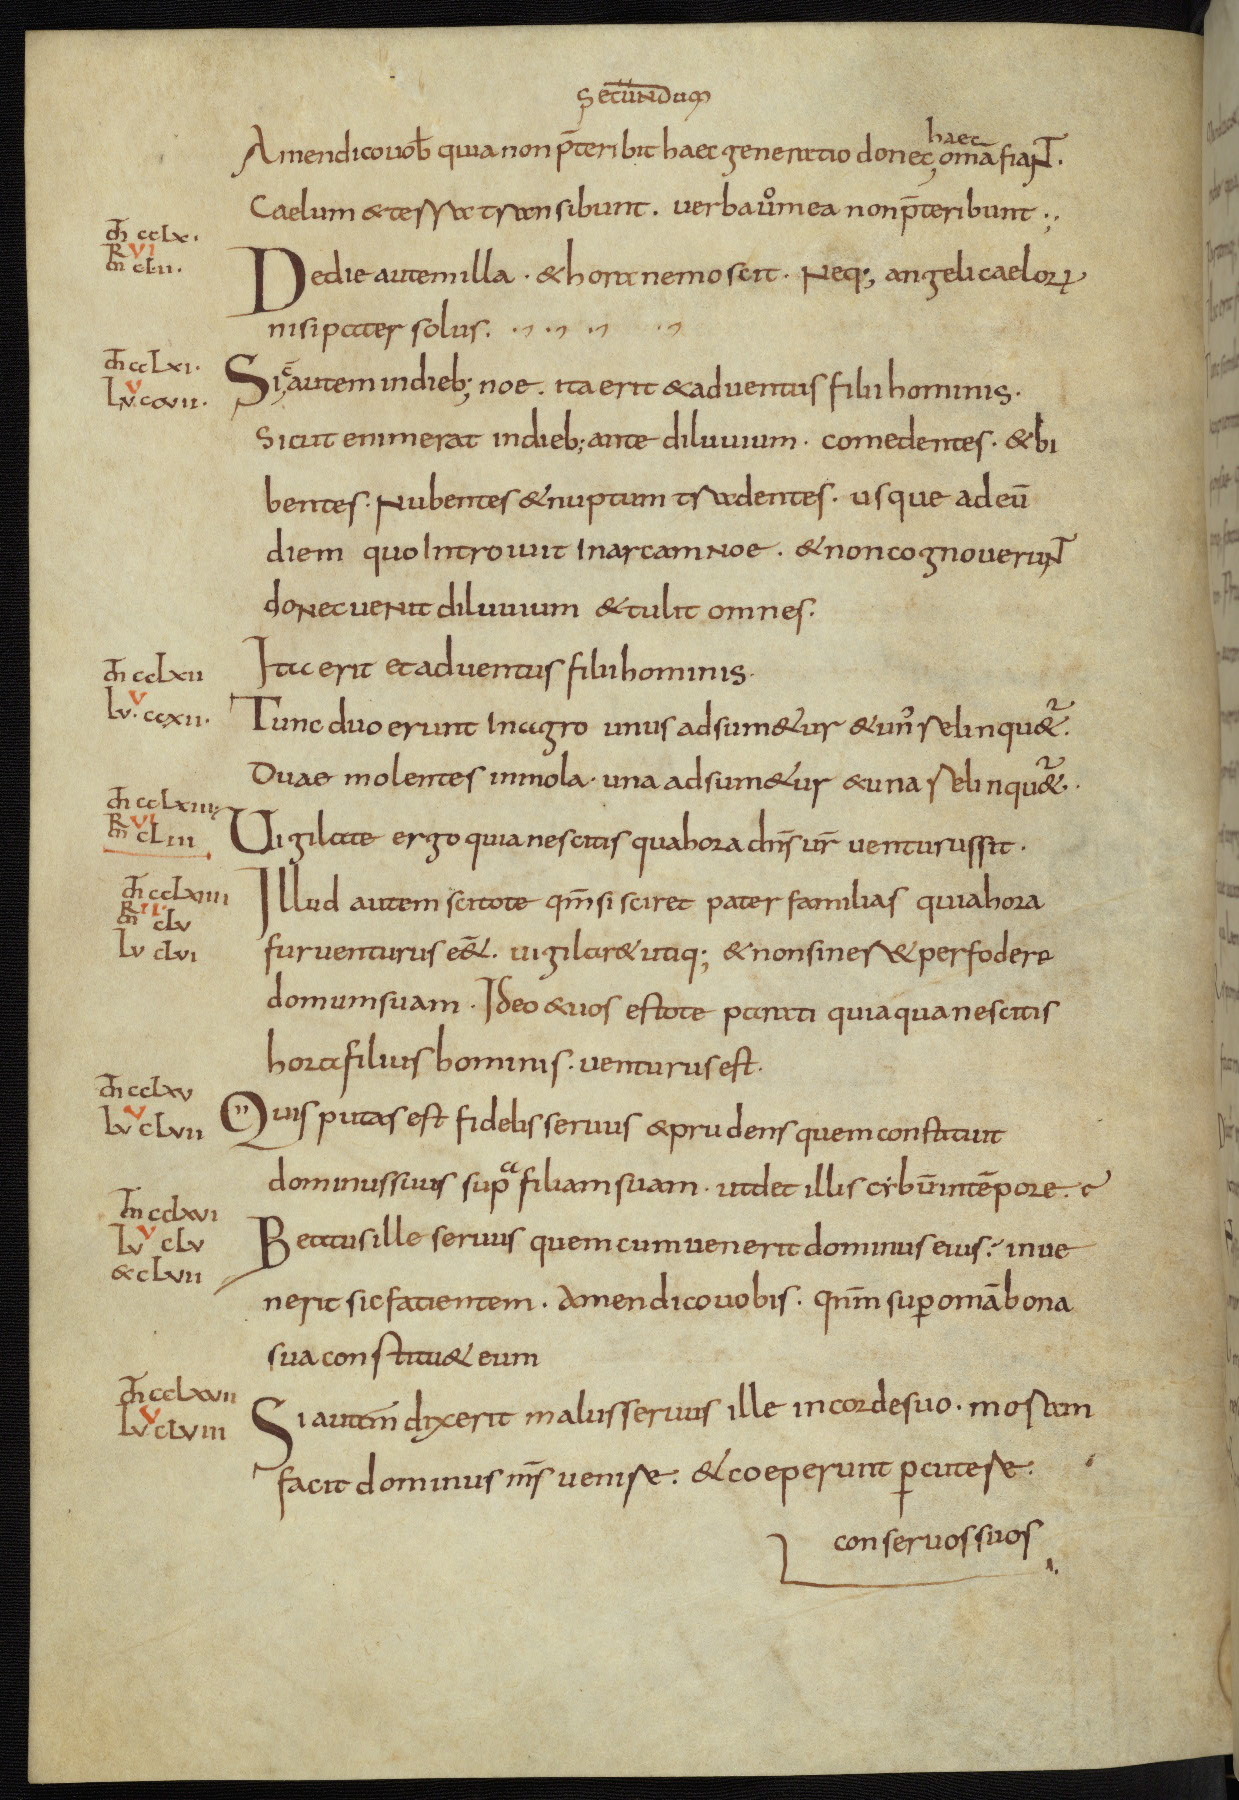 Secundum
Amendicouob̄ quia non p̄teribit haec generatio donec haec om̄a fiant.
Caelum & terra transibunt. uerba ů mea non p̄teribunt.;
m̄ ccLx.
R VI
m̄ cLII.
De die autem illa. & hora nemo scit. Neq; angeli caeloꝝ
nisi pater solus.
m̄ ccLxi.
Lu V ccvii.
Sic̄ autem in dieb; noe. ita erit & aduentus filii hominis.
Sicut enim erat in dieb; ante diluuium. comedentes. & bi
bentes. Nubentes & nuptum tradentes. usque ad eū
diem quo Introiuit In arcam Noe. & non cognouerunt
donec uenit diluuium & tulit omnes.
Ita erit et aduentus filii hominis.
m̄ ccLxii
Lu. V ccxii.
Tunc duo erunt In agro unus adsum&ur & unꝰ relinqu&ᷓ.
Duae molentes in mola. una adsum&ur & una relinqu&ᷓ.
m̄ ccLxiii
R VI
m̄ cLiii
Uigilate ergo quia nescitis qua hora dn̄s ur̄ uenturus sit.
m̄ ccLxiiii
R II
m̄ cLv
Lu cLvi
Illud autem scitote qm̄ si sciret pater familias qua hora
fur uenturus eēt. uigilar& utiq; & non siner& perfodere
domum suam. Ideo & uos estote parati quia qua nescitis
hora filius hominis. uenturus est.
m̄ ccLxv
Lu V cLvii
Quis putas est fidelis seruus & prudens quem constituit
dominus suus supᵃ filiam suam. ut det illis cybū in tēpore.
m̄ ccLxvi
Lu V cLv
& cLvii
Beatus ille seruus quem cum uenerit dominus eius. inue
nerit sic fatientem. Amen dico uobis. qnm̄ suꝑ om̄a bona
sua constitu& eum
m̄ ccLxvii
Lu V cLviii
Si autem̄ dixerit malus seruus ille in corde suo. moram
facit dominus m̄s uenire. & coeperunt ꝑcutere.
conseruos suos